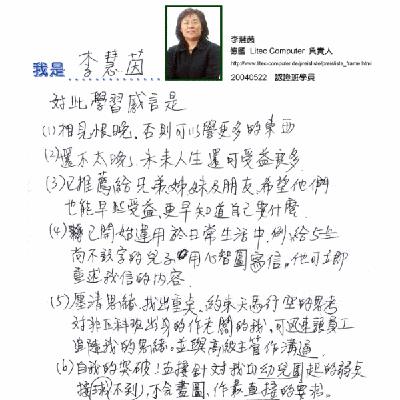 李慧茵
德國 Litec Computer 負責人
http://www.litec-computer.de/preisliste/preisliste_frame.html
20040522 認證班學員
我是 李慧茵
對此學習感言是
(1)相見恨晚，否則可以學更多的東西
(2)還不太晚，未來人生還可受益良多
(3)已推薦給兄弟姊妹及朋友，希望他們
也能早點受益，更早知道自己要什麼
(4)已開始運用於日常生活中，例：給5歲
尚不識字的兒子用心智圖寫信。他可立即
重述我信的內容
(5)釐清思緒，找出重點，約束天馬行空的思考
對於 出身的作老闆的我，可 員工
追隨我的思緒。並與高級主管作溝通
(6)自我的突破！直接針對我自幼兒園起的弱點
不到，不會畫圖，作最直接的